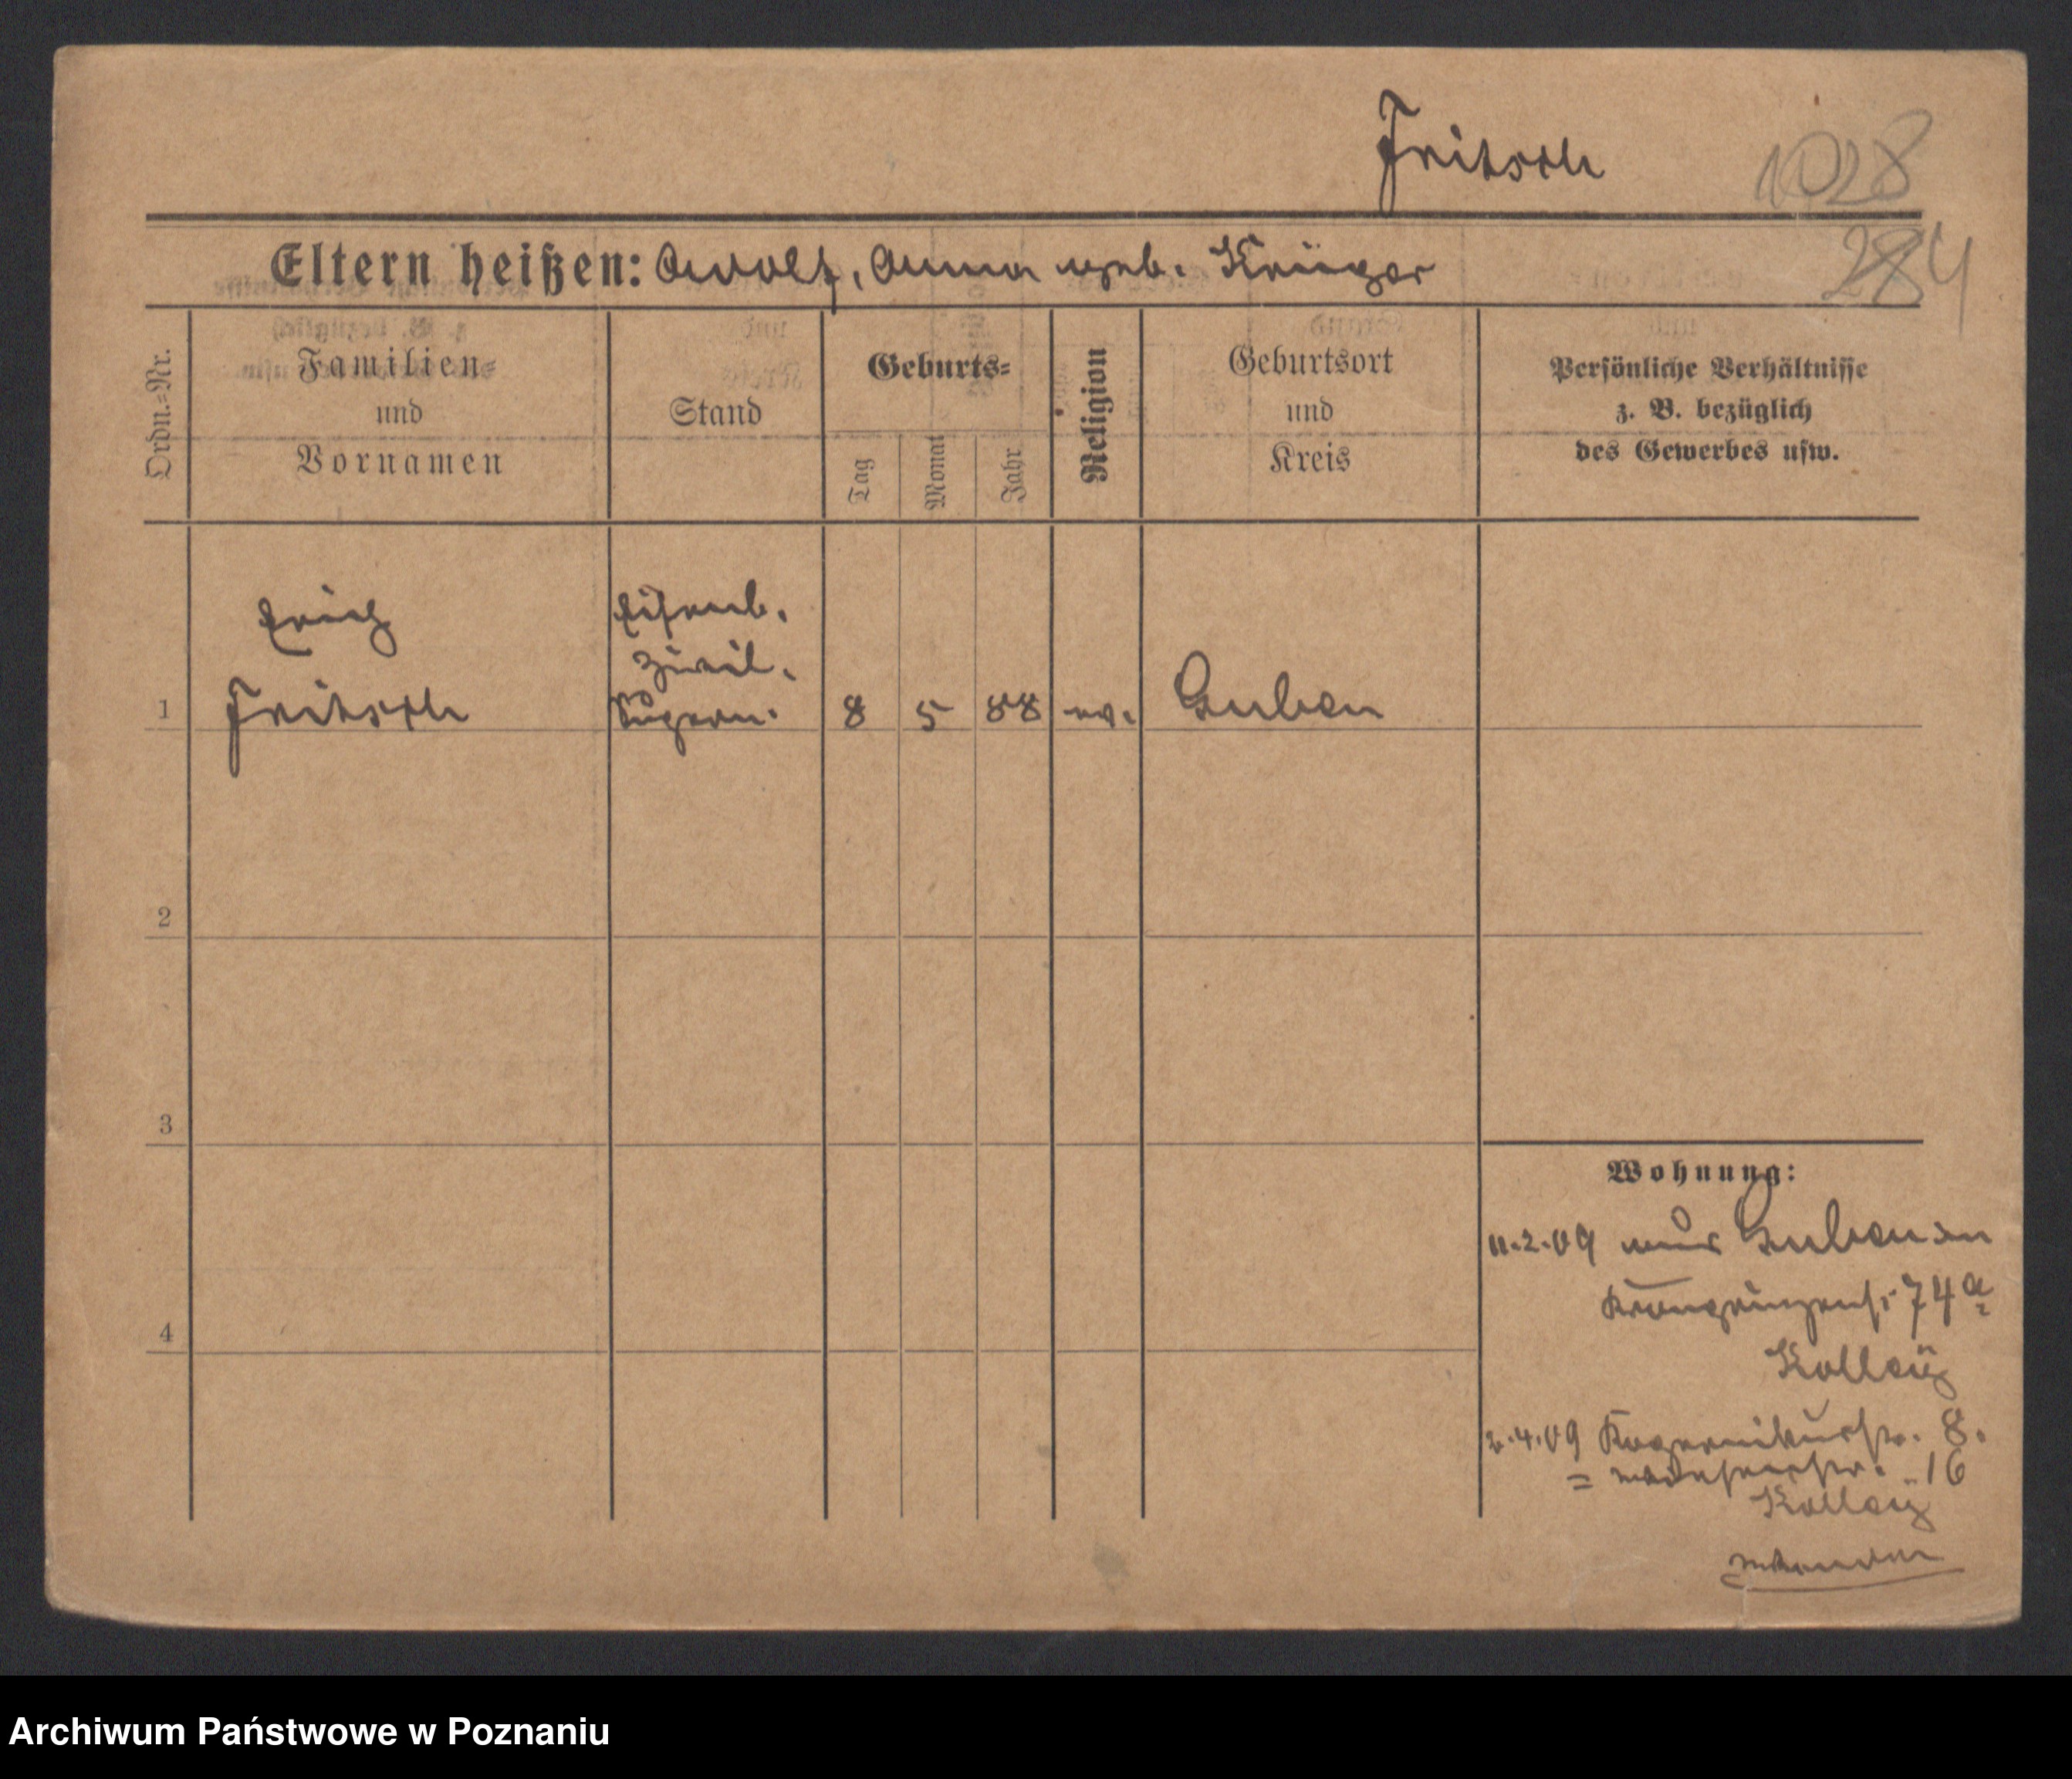 Fritsch
1028
284
Eltern heißen: Adolf, Anna geb. Krüger
Ordn.-Nr.
Familien-
und
Vornamen
Stand
Geburts-
Tag
Monat
Jahr
Religion
Geburtsort
und
Kreis
Persönliche Verhältnisse
z. B. bezüglich
des Gewerbes usw.
Erich
Eisenb.
Zivil.
1 Fritsch Supern. 8 5 88 ev. Guben
2
3
4
Wohnung:
11.2.09 aus Guben in
Kronprinzenstr 74a
2.4.09 Kopernikusstr. 8.
16
Archiwum Państwowe w Poznaniu